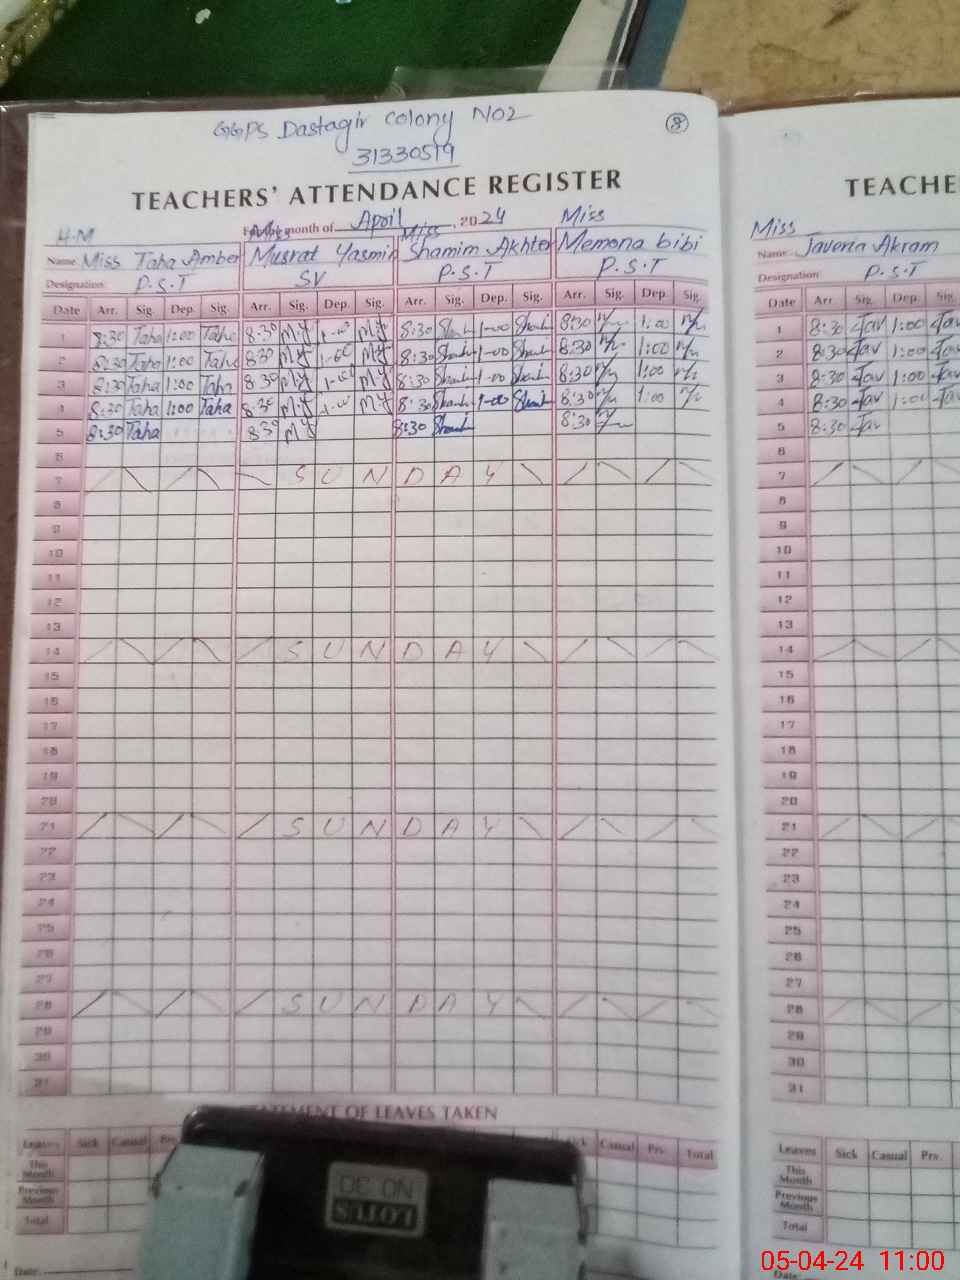 GGPS Dastagir colony NO2
8
31330519
TEACHERS' ATTENDANCE REGISTER
For the month of April, 2024
H.M Miss Miss Miss
Name Miss Taha Amber Musrat Yasmin Shamim Akhter Memona bibi
Designation P.S.T SV P.S.T P.S.T
Date Arr. Sig. Dep. Sig. Arr. Sig. Dep. Sig. Arr. Sig. Dep. Sig. Arr. Sig. Dep. Sig.
1 8:30 Taha 1:00 Taha 8:30 M.Y 1-00 M.Y 8:30 1-00 8:30 1:00
2 8:30 Taha 1:00 Taha 8:30 M.Y 1-00 M.Y 8:30 1-00 8:30 1:00
3 8:30 Taha 1:00 Taha 8:30 M.Y 1-00 M.Y 8:30 1-00 8:30 1:00
4 8:30 Taha 1:00 Taha 8:30 M.Y 1-00 M.Y 8:30 1-00 8:30 1:00
5 8:30 Taha 8:30 M.Y 8:30 8:30
6
7 SUNDAY
8
9
10
11
12
13
14 SUNDAY
15
16
17
18
19
20
21 SUNDAY
22
23
24
25
26
27
28 SUNDAY
29
30
31
STATEMENT OF LEAVES TAKEN
Leaves Sick Casual Sick Casual Prv. Total
This Month
Previous Month
Total
Date
DC ON
LOTUS
TEACHE
Miss
Name Javeria Akram
Designation P.S.T
Date Arr. Sig. Dep. Sig.
1 8:30 Jav 1:00 Jav
2 8:30 Jav 1:00 Jav
3 8:30 Jav 1:00 Jav
4 8:30 Jav 1:00 Jav
5 8:30 Jav
6
7
8
9
10
11
12
13
14
15
16
17
18
19
20
21
22
23
24
25
26
27
28
29
30
31
Leaves Sick Casual Prv.
This Month
Previous Month
Total
Date
05-04-24 11:00